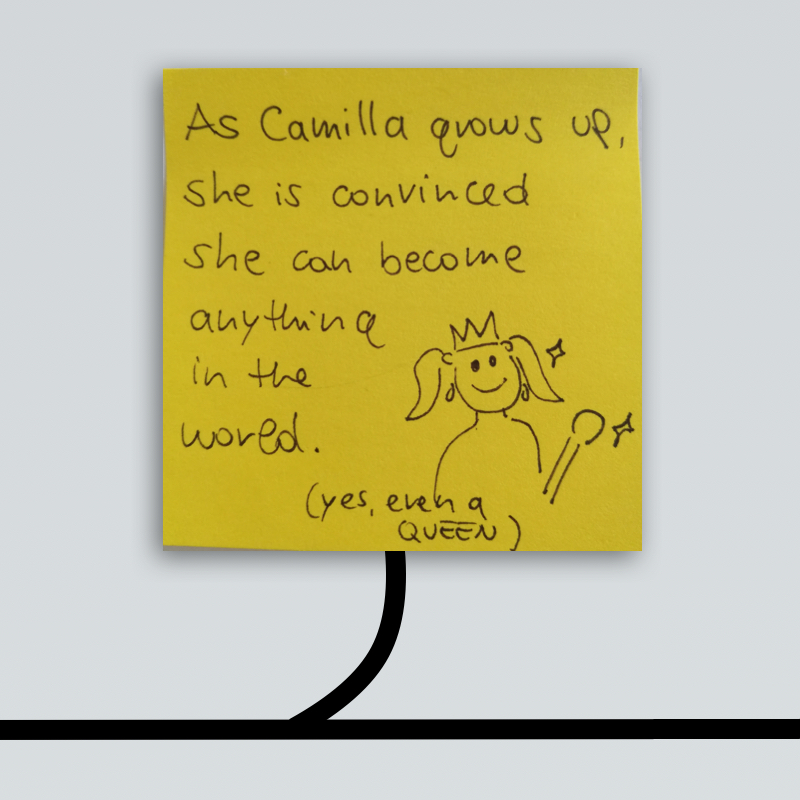 As Camilla grows up,
she is convinced
she can become
anything
in the
world.
(yes, even a
QUEEN)